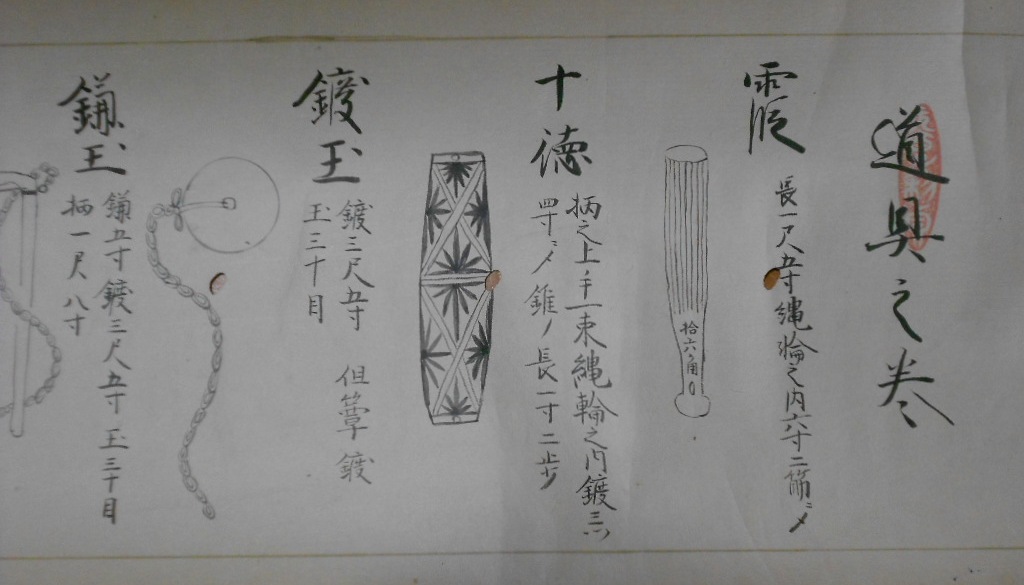 道具之巻
霞
長一尺五寸縄輪之内六寸二筋〆
拾六角
十徳
柄之上手一束縄輪之内鍍三ツ
四寸〆錐ノ長一寸二歩
鍍玉
鍍三尺五寸 但 鍍
玉三十目
鎌玉
鎌五寸鍍三尺五寸玉三十目
柄一尺八寸